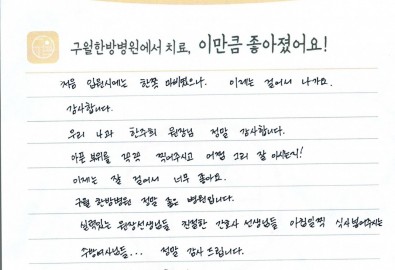 구월한방병원에서 치료, 이만큼 좋아졌어요!
처음 입원시에는 한쪽 마비였으나. 이제는 걸어서 나가요.
감사합니다.
우리 나과 한수희 원장님 정말 감사합니다.
아픈 부위를 꼭꼭 찍어주시고 어쩜 그리 잘 아시는지!
이제는 잘 걸어서 너무 좋아요.
구월 한방병원 정말 좋은 병원입니다.
실력있는 원장선생님들 친절한 간호사 선생님들 아침일찍 식사 넣어주시는
수방여사님들... 정말 감사 드립니다.